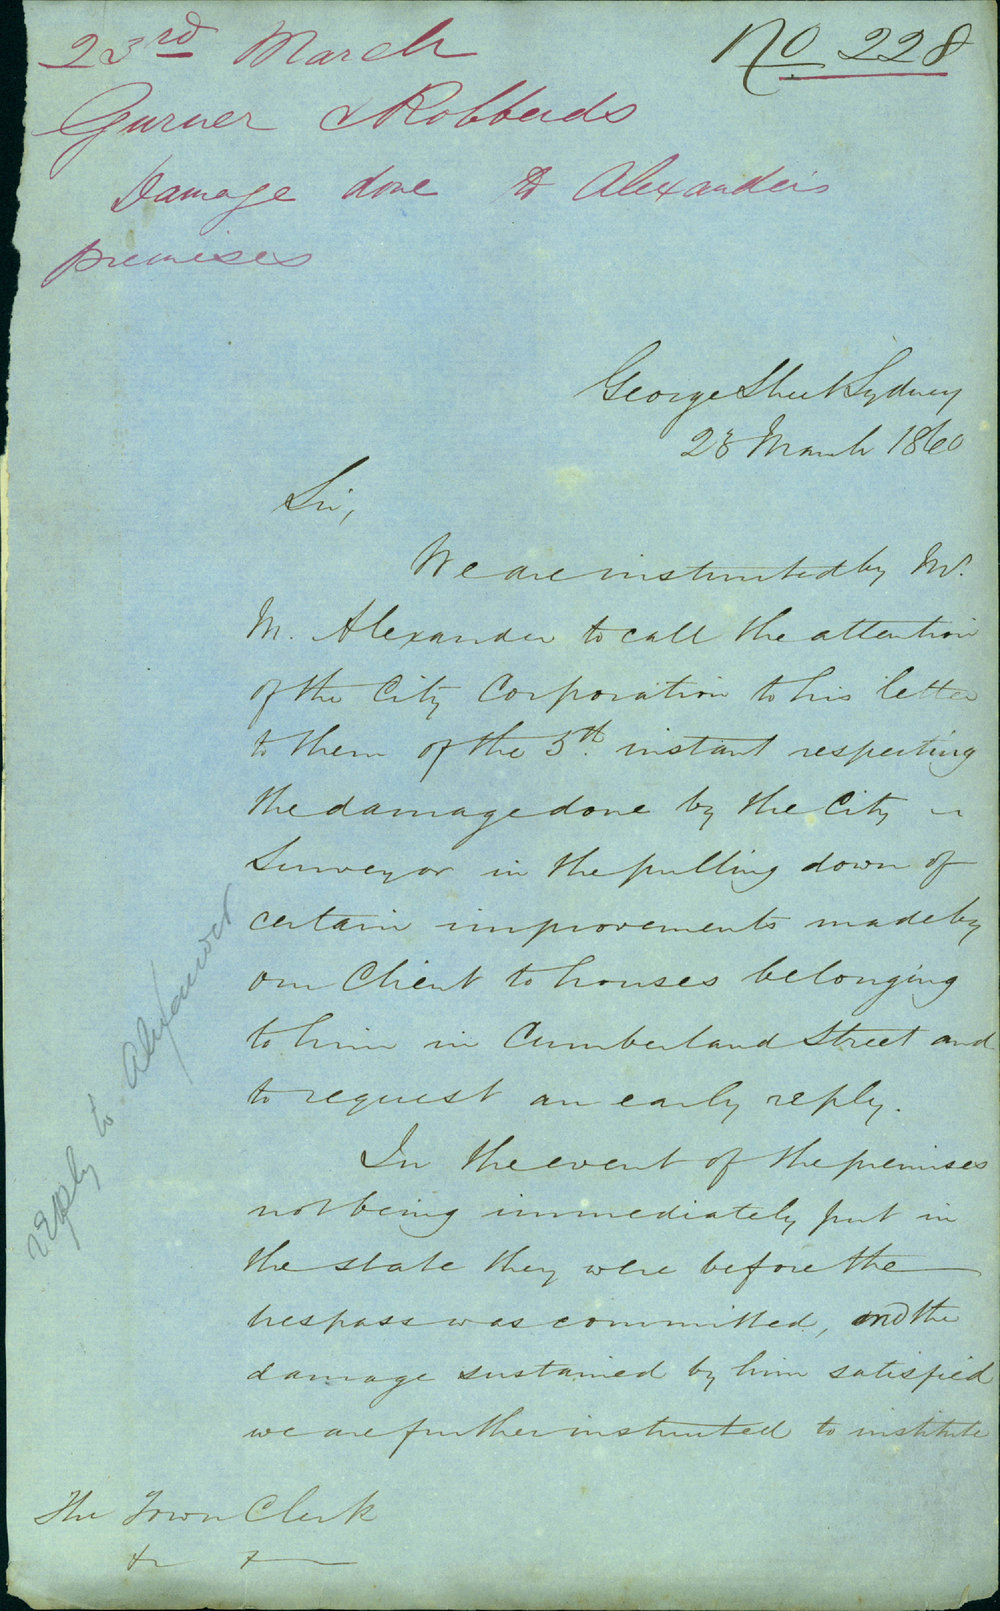 23rd March
No 228
Gurner & Robberds
Damage done to Alexander's
premises
George Street Sydney
23 March 1860
Sir,
We are instructed by Mr.
M. Alexander to call the attention
of the City Corporation to his letter
to them of the 5th instant respecting
the damage done by the City
Surveyor in the pulling down of
certain improvements made by
our Client to houses belonging
to him in Cumberland Street and
to request an early reply.
In the event of the premises
not being immediately put in
the state they were before the
trespass was committed, and the
damage sustained by him satisfied
we are further instructed to institute
The Town Clerk
&c
reply to Alexander